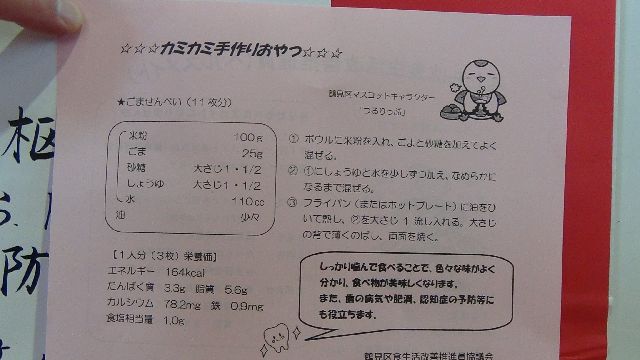 ☆☆☆カミカミ手作りおやつ☆☆☆
鶴見区マスコットキャラクター
「つるりっぷ」
★ごませんべい(11枚分)
米粉 100g
ごま 25g
砂糖 大さじ1・1/2
しょうゆ 大さじ1・1/2
水 110cc
油 少々
① ボウルに米粉を入れ、ごまと砂糖を加えてよく
混ぜる。
② ①にしょうゆと水を少しずつ加え、なめらかに
なるまで混ぜる。
③ フライパン(またはホットプレート)に油をひ
いて熱し、②を大さじ1流し入れる。大さじ
の背で薄くのばし、両面を焼く。
【1人分(3枚)栄養価】
エネルギー 164kcal
たんぱく質 3.3g 脂質 5.6g
カルシウム 78.2mg 鉄 0.9mg
食塩相当量 1.0g
しっかり噛んで食べることで、色々な味がよく
分かり、食べ物が美味しくなります。
また、歯の病気や肥満、認知症の予防等に
も役立ちます。
鶴見区食生活改善推進員協議会
枢
防